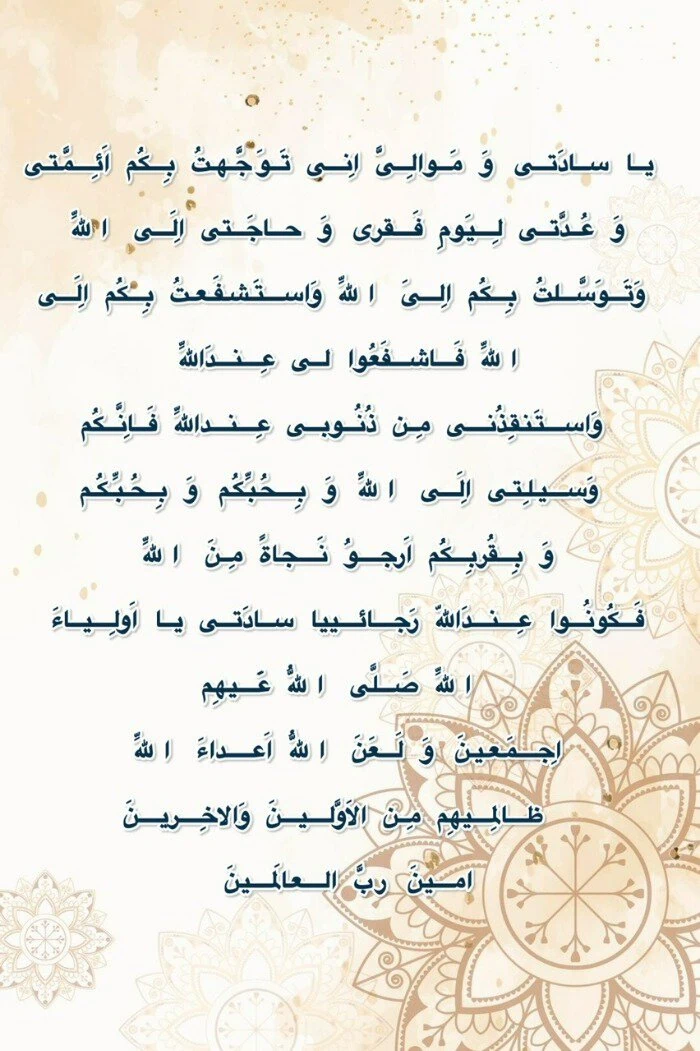 یا سادَتی وَ مَوالِیَّ اِنی تَوَجَّهتُ بِکُم اَئِمَّتی
وَ عُدَّتی لِیَومِ فَقری وَ حاجَتی اِلَی اللهِّ
وَتَوَسَّلتُ بِکُم اِلیَ اللهِّ وَاستَشفَعتُ بِکُم اِلَی
اللهِّ فَاشفَعُوا لی عِندَاللهِّ
وَاستَنقِذُنی مِن ذُنُوبی عِنداللهِّ فَاِنَّکُم
وَسیلِتی اِلَی اللهِّ وَ بِحُبِّکُم وَ بِحُبِّکُم
وَ بِقُربِکُم اَرجوُ نَجاةً مِنَ اللهِّ
فَکُونُوا عِندَاللهّ رَجائییا سادَتی یا اَولِیاءَ
اللهِّ صَلَّی اللهُّ عَیهِم
اِجمَعینَ وَ لَعَنَ اللهُّ اَعداءَ اللهِّ
ظالِمِیهِم مِنِ الاَوَّلینَ وَالاخِرینَ
امینَ ربَّ العالَمینَ